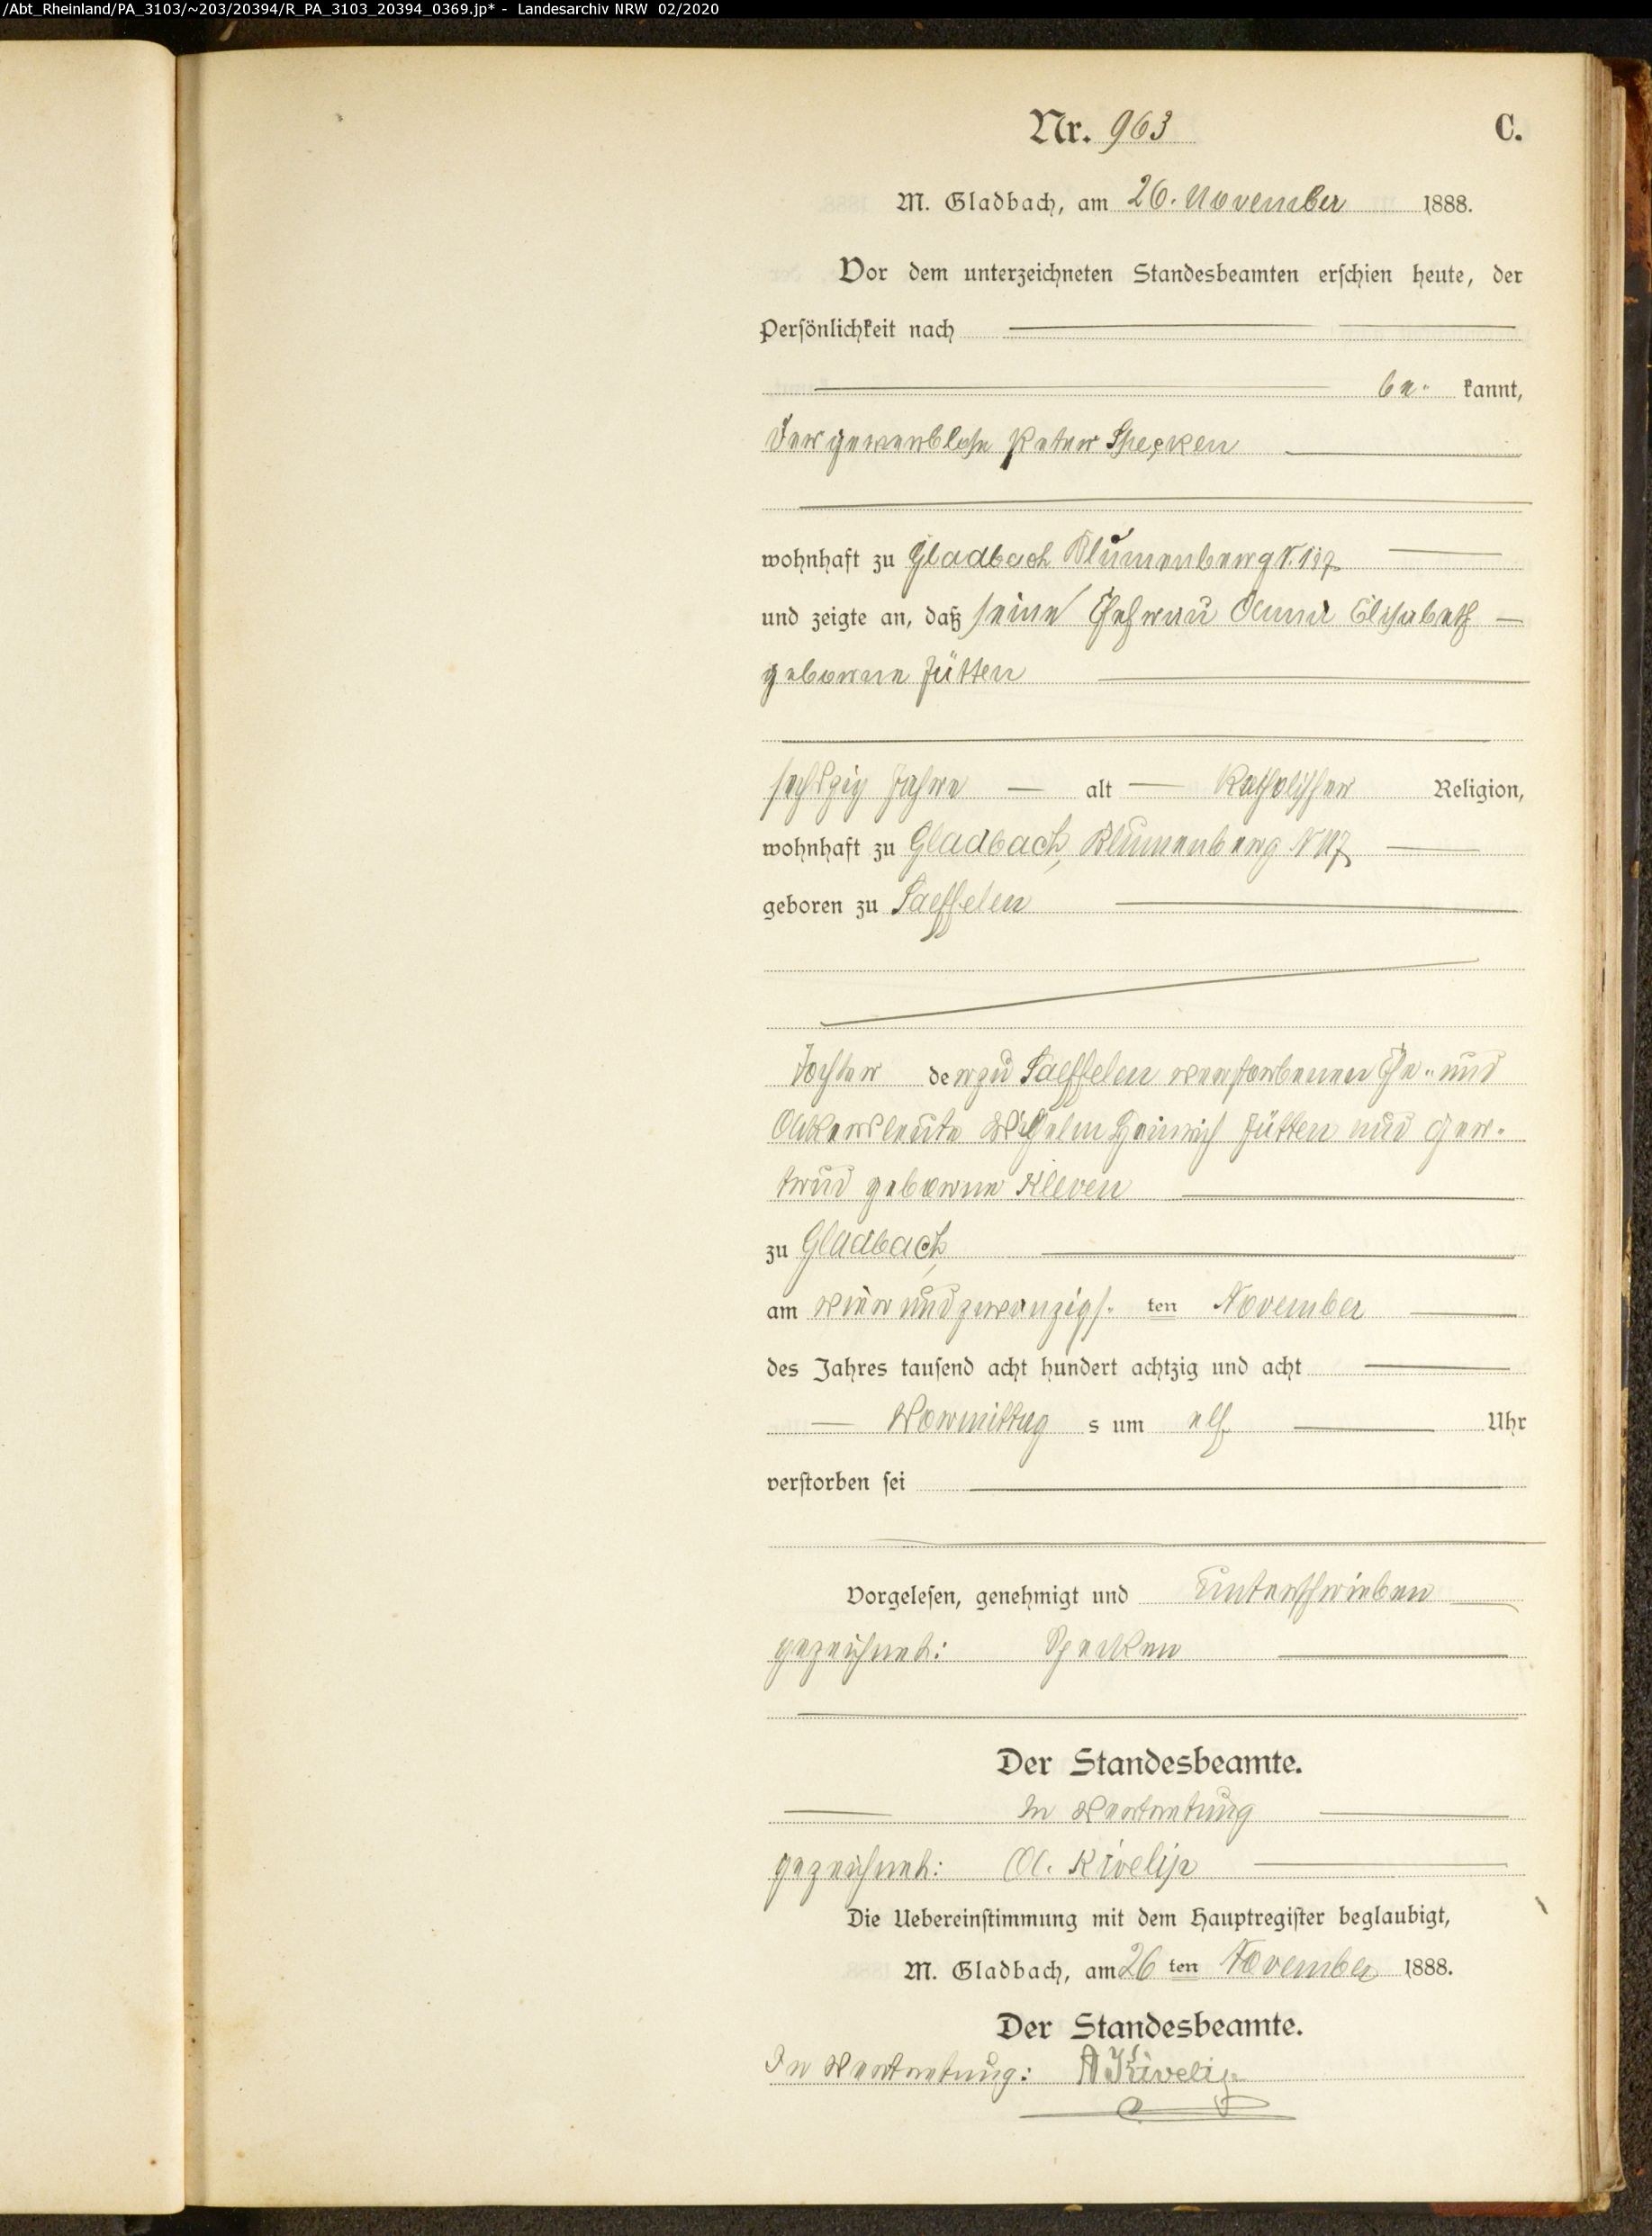 /Abt_Rheinland/PA_3103/~203/20394/R_PA_3103_20394_0369.jp* - Landesarchiv NRW 02/2020
Nr. 963 C.
M. Gladbach, am 26. November 1888.
Vor dem unterzeichneten Standesbeamten erschien heute, der
Persönlichkeit nach
be- kannt,
der gewerblose Peter Specken
wohnhaft zu Gladbach Blumenberg N.
und zeigte an, daß seine Ehefrau Anna Elisabeth
geborne Jütten
sechszig Jahre alt Katholischer Religion,
wohnhaft zu Gladbach, Blumenberg N
geboren zu Saeffelen
Tochter der zu Saeffelen verstorbenen Ehe- und
Ackersleute Wilhelm Heinrich Jütten und Ger-
trud geborne Kleven
zu Gladbach,
am vier und zwanzigs- ten November
des Jahres tausend acht hundert achtzig und acht
Vormittag s um elf Uhr
verstorben sei
Vorgelesen, genehmigt und unterschrieben
gezeichnet: Specken
Der Standesbeamte.
In Vertretung
gezeichnet: A. Kivelip
Die Uebereinstimmung mit dem Hauptregister beglaubigt,
M. Gladbach, am 26 ten November 1888.
Der Standesbeamte.
In Vertretung: A Kivelip